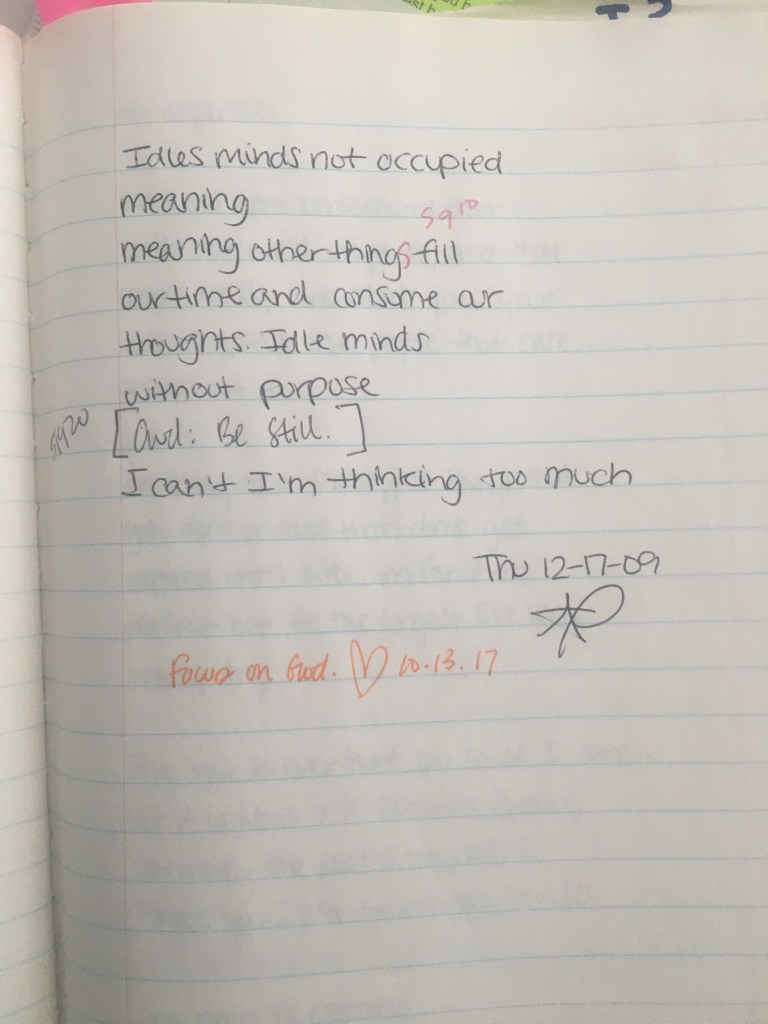 Idles minds not occupied
meaning
meaning other things fill
our time and consume our
thoughts. Idle minds
without purpose
[God: Be Still.]
I can't I'm thinking too much
Thu 12-17-09
Focus on God. ♡ 10.13.17